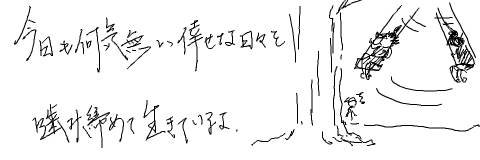 今日も何気無い倖せな日々を
噛み締めて生きているよ.